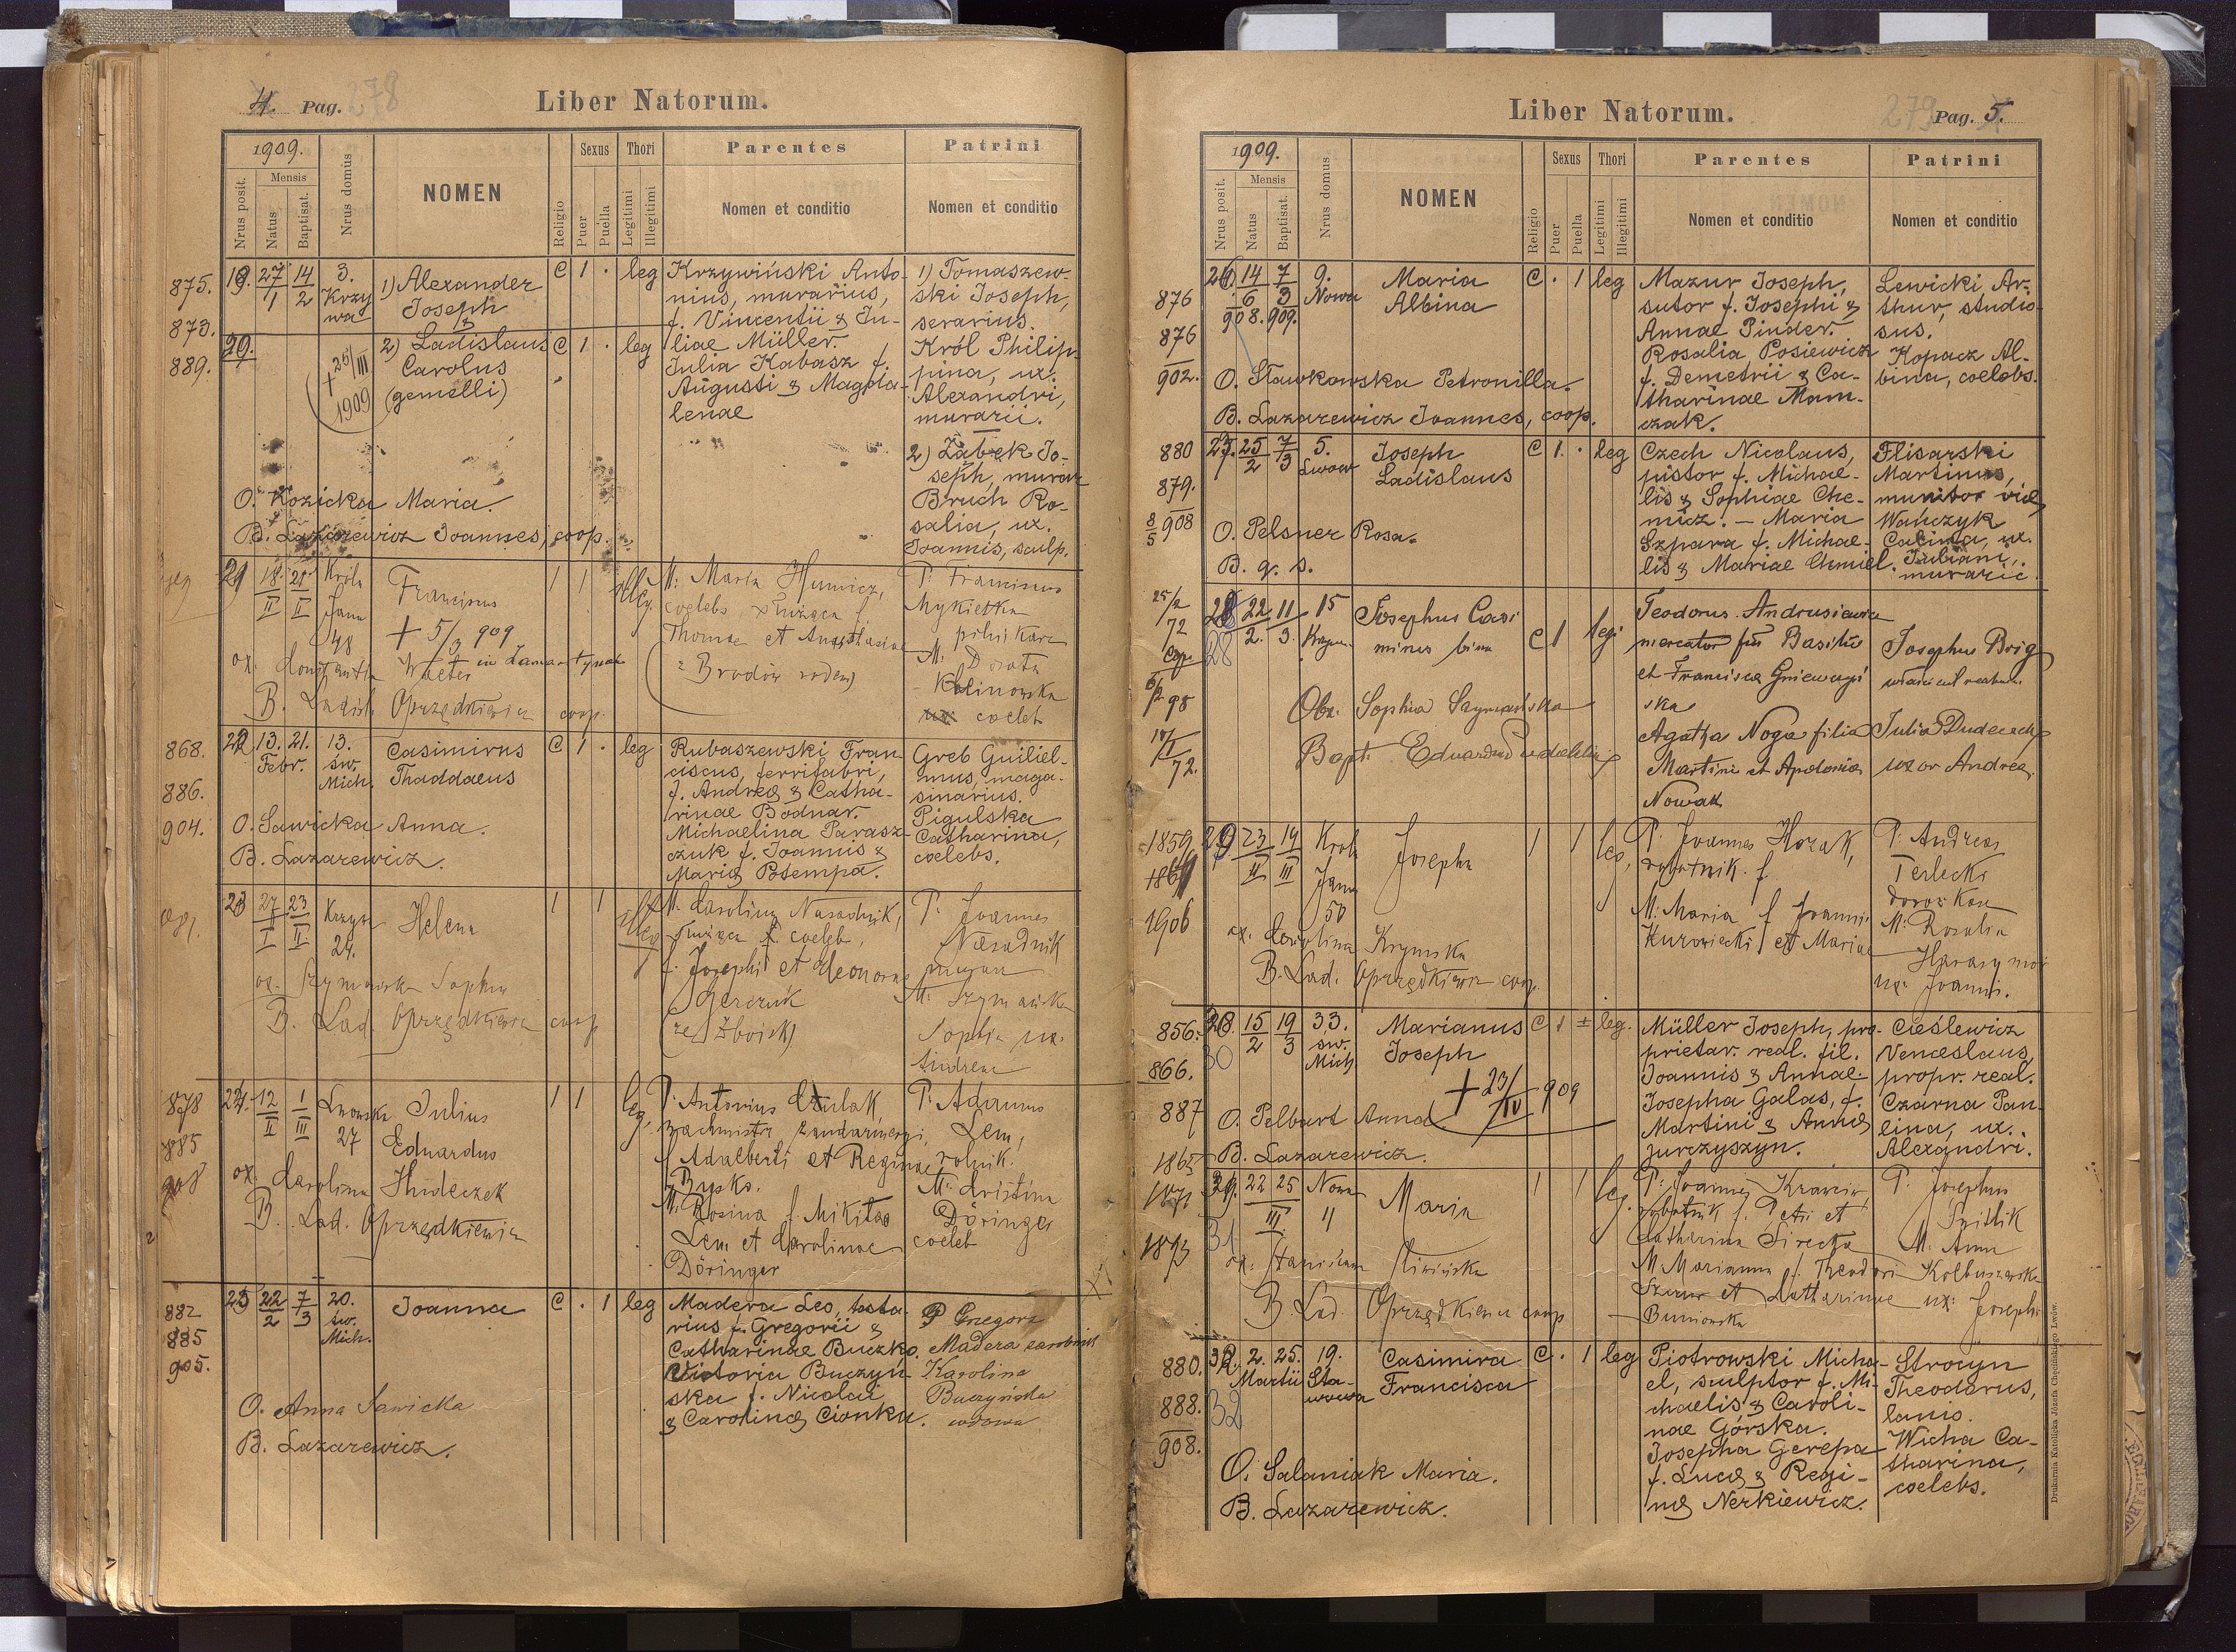 4. Pag. 278
Liber Natorum.
1909.
Nrus posit.
Mensis
Natus
Baptisat.
Nrus domus
NOMEN
Religio
Sexus
Puer
Puella
Thori
Legitimi
Illegitimi
Parentes
Nomen et conditio
Patrini
Nomen et conditio
875.
873.
889.
19. 27/1 14/2
3.
Krzy
wa
1) Alexander
Joseph
&
20.
2) Ladislaus
Carolus
(gemelli)
+ 25/III
1909
C 1 . leg
C 1 . leg
Krzywiński Anto-
nius, murarius,
f. Vincentii & Ju-
liae Müller.
Julia Kabasz f.
Augusti & Magda-
lenae
1) Tomaszew-
ski Joseph,
serarius.
Król Philip-
pina, ux.
Alexandri,
murarii.
2) Ząbek Jo-
seph, murar
Bruch Ro-
salia, ux.
Joannis, sculp.
O. Kozicka Maria.
B. Lazarewicz Joannes, coop.
21 18/II 21/II
Króla
Jana
48
Franciscus
+ 5/3 909
1 1 illeg.
M: Maria Humicz,
coelebs służąca f.
Thomae et Anastasiae
(z Brodów rodem)
P: Franciscus
Mykietka
pilnikarz
M: Dorota
Kalinowska
coeleb
B. Ladisl. Oprzędkiewicz coop.
868.
886.
904.
22 13. 21.
Febr.
13.
św.
Mich.
Casimirus
Thaddaeus
C 1 . leg
Rubaszewski Fran
ciscus, ferrifabri,
f. Andreæ & Catha-
rinae Bodnar.
Michaelina Parasz-
czuk f. Joannis &
Mariæ Potempa.
Greb Guiliel-
mus, maga-
sinarius.
Pigulska
Catharina,
coelebs.
O. Sawicka Anna.
B. Lazarewicz.
23 27/I 23/II
Krzywa
24.
Helena
1 1 illeg
M. Carolina Nasadnik,
służąca f. coeleb,
f. Josephi et Eleonorae
Gerczuk
(ze Zboisk)
P. Joannes
Nasadnik
murarz
M: Szymańska
Sophia ux.
Andreae
ox. Szymańska Sophia
B. Lad. Oprzędkiewicz coop
878
885
908
24. 12/I 1/III
Lwowska
27
Julius
Eduardus
1 1 leg.
P: Antonius Czulak,
wachmistrz żandarmeryi,
f. Adalberti et Reginae
Bysko.
M: Rosina f. Mikitao
Lem et Carolinae
Döringer
P: Adamus
Lem,
rolnik.
M: Cristina
Döringer
coeleb
ox. Carolina Hudeczek
B. Lad. Oprzędkiewicz
882
885
905.
25 22/2 7/3
20.
św.
Mich.
Joanna
C . 1 leg
Madera Leo, tosta-
rius f. Gregorii &
Catharinae Buczko.
Victoria Buczyń-
ska f. Nicolai
& Carolinæ Cionka.
P Grzegorz
Madera zarobnik
Karolina
Buczyńska
wdowa
O. Anna Sawicka
B. Lazarewicz.
Liber Natorum.
279 Pag. 5.
1909.
Nrus posit.
Mensis
Natus
Baptisat.
Nrus domus
NOMEN
Religio
Sexus
Puer
Puella
Thori
Legitimi
Illegitimi
Parentes
Nomen et conditio
Patrini
Nomen et conditio
876
876
902.
26 14 7
6 3
908. 909.
9.
Nowa
Maria
Albina
C . 1 leg
Mazur Joseph,
sutor f. Josephi &
Annae Pinder.
Rosalia Posiewicz
f. Demetrii & Ca-
tharinae Mam-
czak.
Lewicki Ar-
thur, studio-
sus.
Kopacz Al-
bina, coelebs.
O. Sławkowska Petronilla.
B. Lazarewicz Joannes, coop.
880
879.
8/5 908
27. 25/2 7/3
5.
Lwow
Joseph
Ladislaus
C 1 . leg
Czech Nicolaus,
pistor f. Michae-
lis & Sophiae Che-
micz. — Maria
Szpara f. Michae-
lis & Mariae Chmiel.
Flisarski
Martinus,
munitor viæ
Wańczyk
Calinta, ux.
Juliani,
murarii.
O. Pelsner Rosa.
B. q. s.
25/2
72
98
72.
28 22/2. 11/3.
28
15
Krzyw.
Josephus Casi
mirus binom
C 1 legi
Teodorus Andrusiewicz
mercator fil Basilii
et Francisca Gniewagi
ska
Agatha Noga filia
Martini et Apolonia
Nowak
Josephus Brig
właściciel realn.
Julia Dudeczek
uxor Andreæ
Obs. Sophia Szymańska
Bapt. Eduardus
1859
1861
1906
29 23/II 14/III
Króla
Jana
50
Josepha
1 1 leg.
P: Joannes Horak,
robotnik f.
M: Maria f Joannis
Kurowiecki et Mariae
P. Andreas
Terlecki
dorożkarz
M: Rosalia
Harasymow
ux. Joannis.
ox. Carolina Krymska
B. Lad. Oprzędkiewicz coop.
856.
866.
887
28. 15/2 19/3
30
33.
św.
Mich
Marianus
Joseph
+ 23/IV 909
C 1 leg.
Müller Joseph, pro-
prietar. real. fil.
Joannis & Annae.
Josepha Galas, f.
Martini & Annæ
Jurczyszyn.
Cieślewicz
Venceslaus,
propr. real.
Czarna Pau-
lina, ux.
Alexandri.
O. Pelbart Anna
B. Lazarewicz.
1865
1871
1893
29. 22 25
III.
31
Nowa
11
Maria
1 1 leg.
P: Joannes Krawiw,
robotnik f. Petri et
Catharina Sirecka
M Marianna f. Theodori
Szewc et Catharinae
Buniowska
P. Josephus
Switlik
M. Anna
Kolbuszewska
ux: Josephi
ox: Stanisława Śliwińska
B. Lad. Oprzędkiewicz coop
880.
888.
908.
32. 2. 25.
Martii
32
19.
Sta-
wowa
Casimira
Francisca
C . 1 leg
Piotrowski Micha-
el, sculptor f. Mi-
chaelis & Caroli-
nae Górska.
Josepha Gerepa
f. Lucæ & Regi-
næ Nerkiewicz.
Strocyn
Theodorus,
lanio.
Wicha Ca-
tharina,
coelebs.
O. Salaniak Maria.
B. Lazarewicz.
Drukarnia Katolicka Józefa Chęcińskiego Lwów.